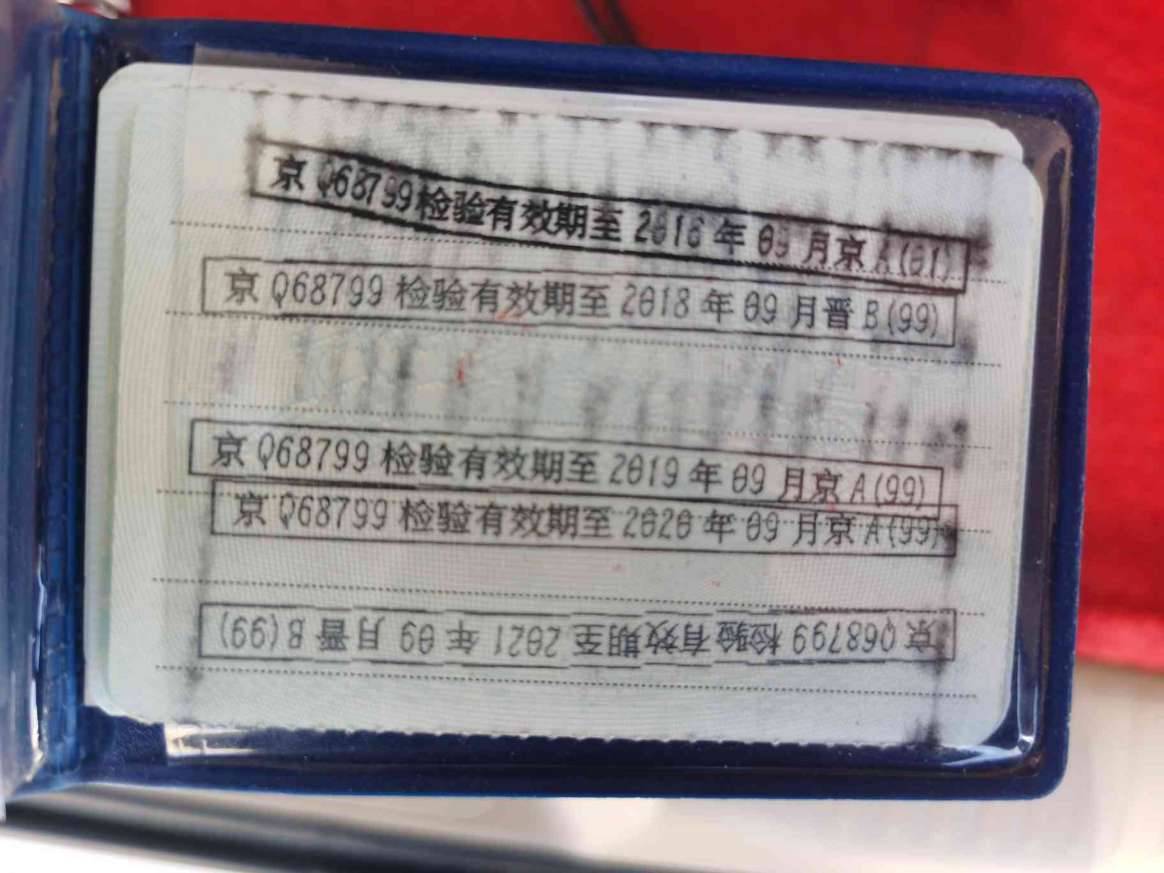 京Q68799检验有效期至2016年09月京A(01)
京Q68799检验有效期至2018年09月晋B(99)
京Q68799检验有效期至2019年09月京A(99)
京Q68799检验有效期至2020年09月京A(99)
京Q68799检验有效期至2021年09月晋B(99)